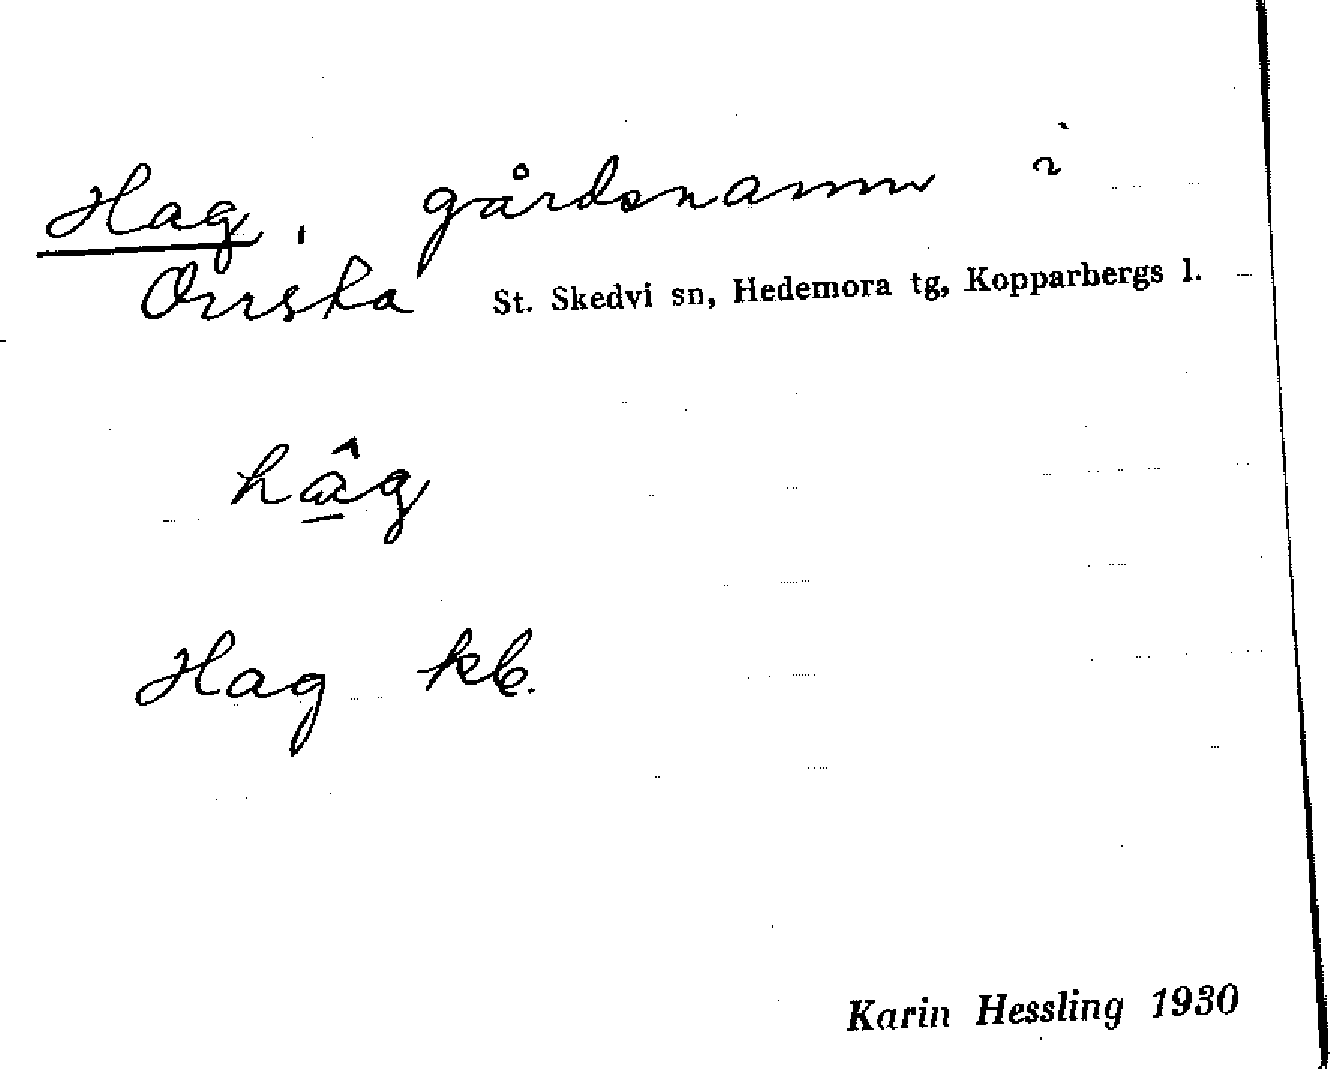 Hag, gårdsnamn i
Orrsta St. Skedvi sn, Hedemora tg, Kopparbergs l.
hâ̱g
Hag kb.
Karin Hessling 1930